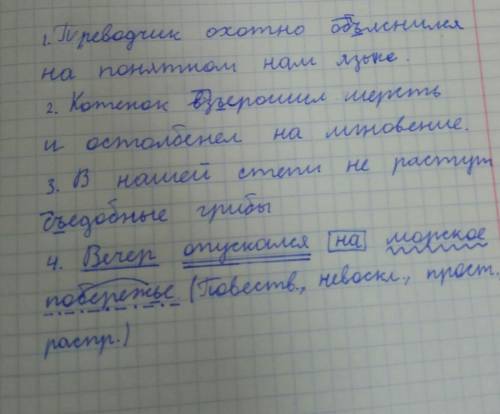 1. Переводчик охотно объяснился
на понятном нам языке.
2. Котенок взъерошил шерсть
и остолбенел на мгновение.
3. В нашей степи не растут
съедобные грибы
4. Вечер опускался на морское
побережье (Повеств., невоскл., прост.
распр.)